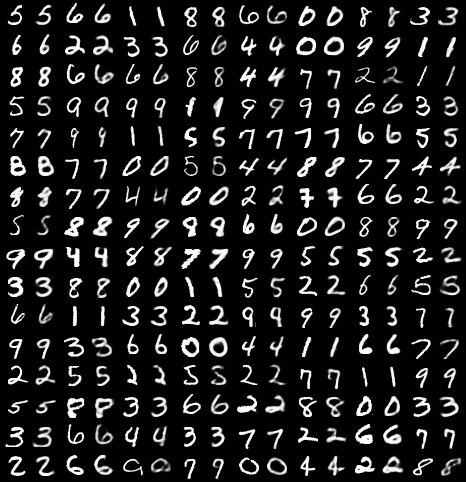 5 5 6 6 1 1 8 8 6 6 0 0 8 8 3 3
6 6 2 2 3 3 6 6 4 4 0 0 9 9 1 1
8 8 6 6 6 6 8 8 4 4 7 7 2 2 1 1
5 5 9 9 9 9 1 1 9 9 9 9 6 6 3 3
7 7 9 9 1 1 5 5 7 7 7 7 6 6 5 5
8 8 7 7 0 0 5 5 4 4 8 8 7 7 4 4
8 8 7 7 4 4 0 0 2 2 7 7 6 6 2 2
5 5 8 8 9 9 8 8 6 6 0 0 8 8 9 9
9 9 4 4 8 8 7 7 9 9 5 5 5 5 2 2
3 3 8 8 0 0 1 1 5 5 2 2 6 6 5 5
6 6 1 1 3 3 2 2 9 9 9 9 3 3 7 7
9 9 3 3 6 6 0 0 4 4 1 1 6 6 7 7
2 2 5 5 2 2 5 5 2 2 7 7 1 1 9 9
5 5 8 8 3 3 6 6 2 2 8 8 0 0 3 3
3 3 6 6 4 4 3 3 7 7 2 2 6 6 7 7
2 2 6 6 9 9 7 9 0 0 4 4 2 2 8 8